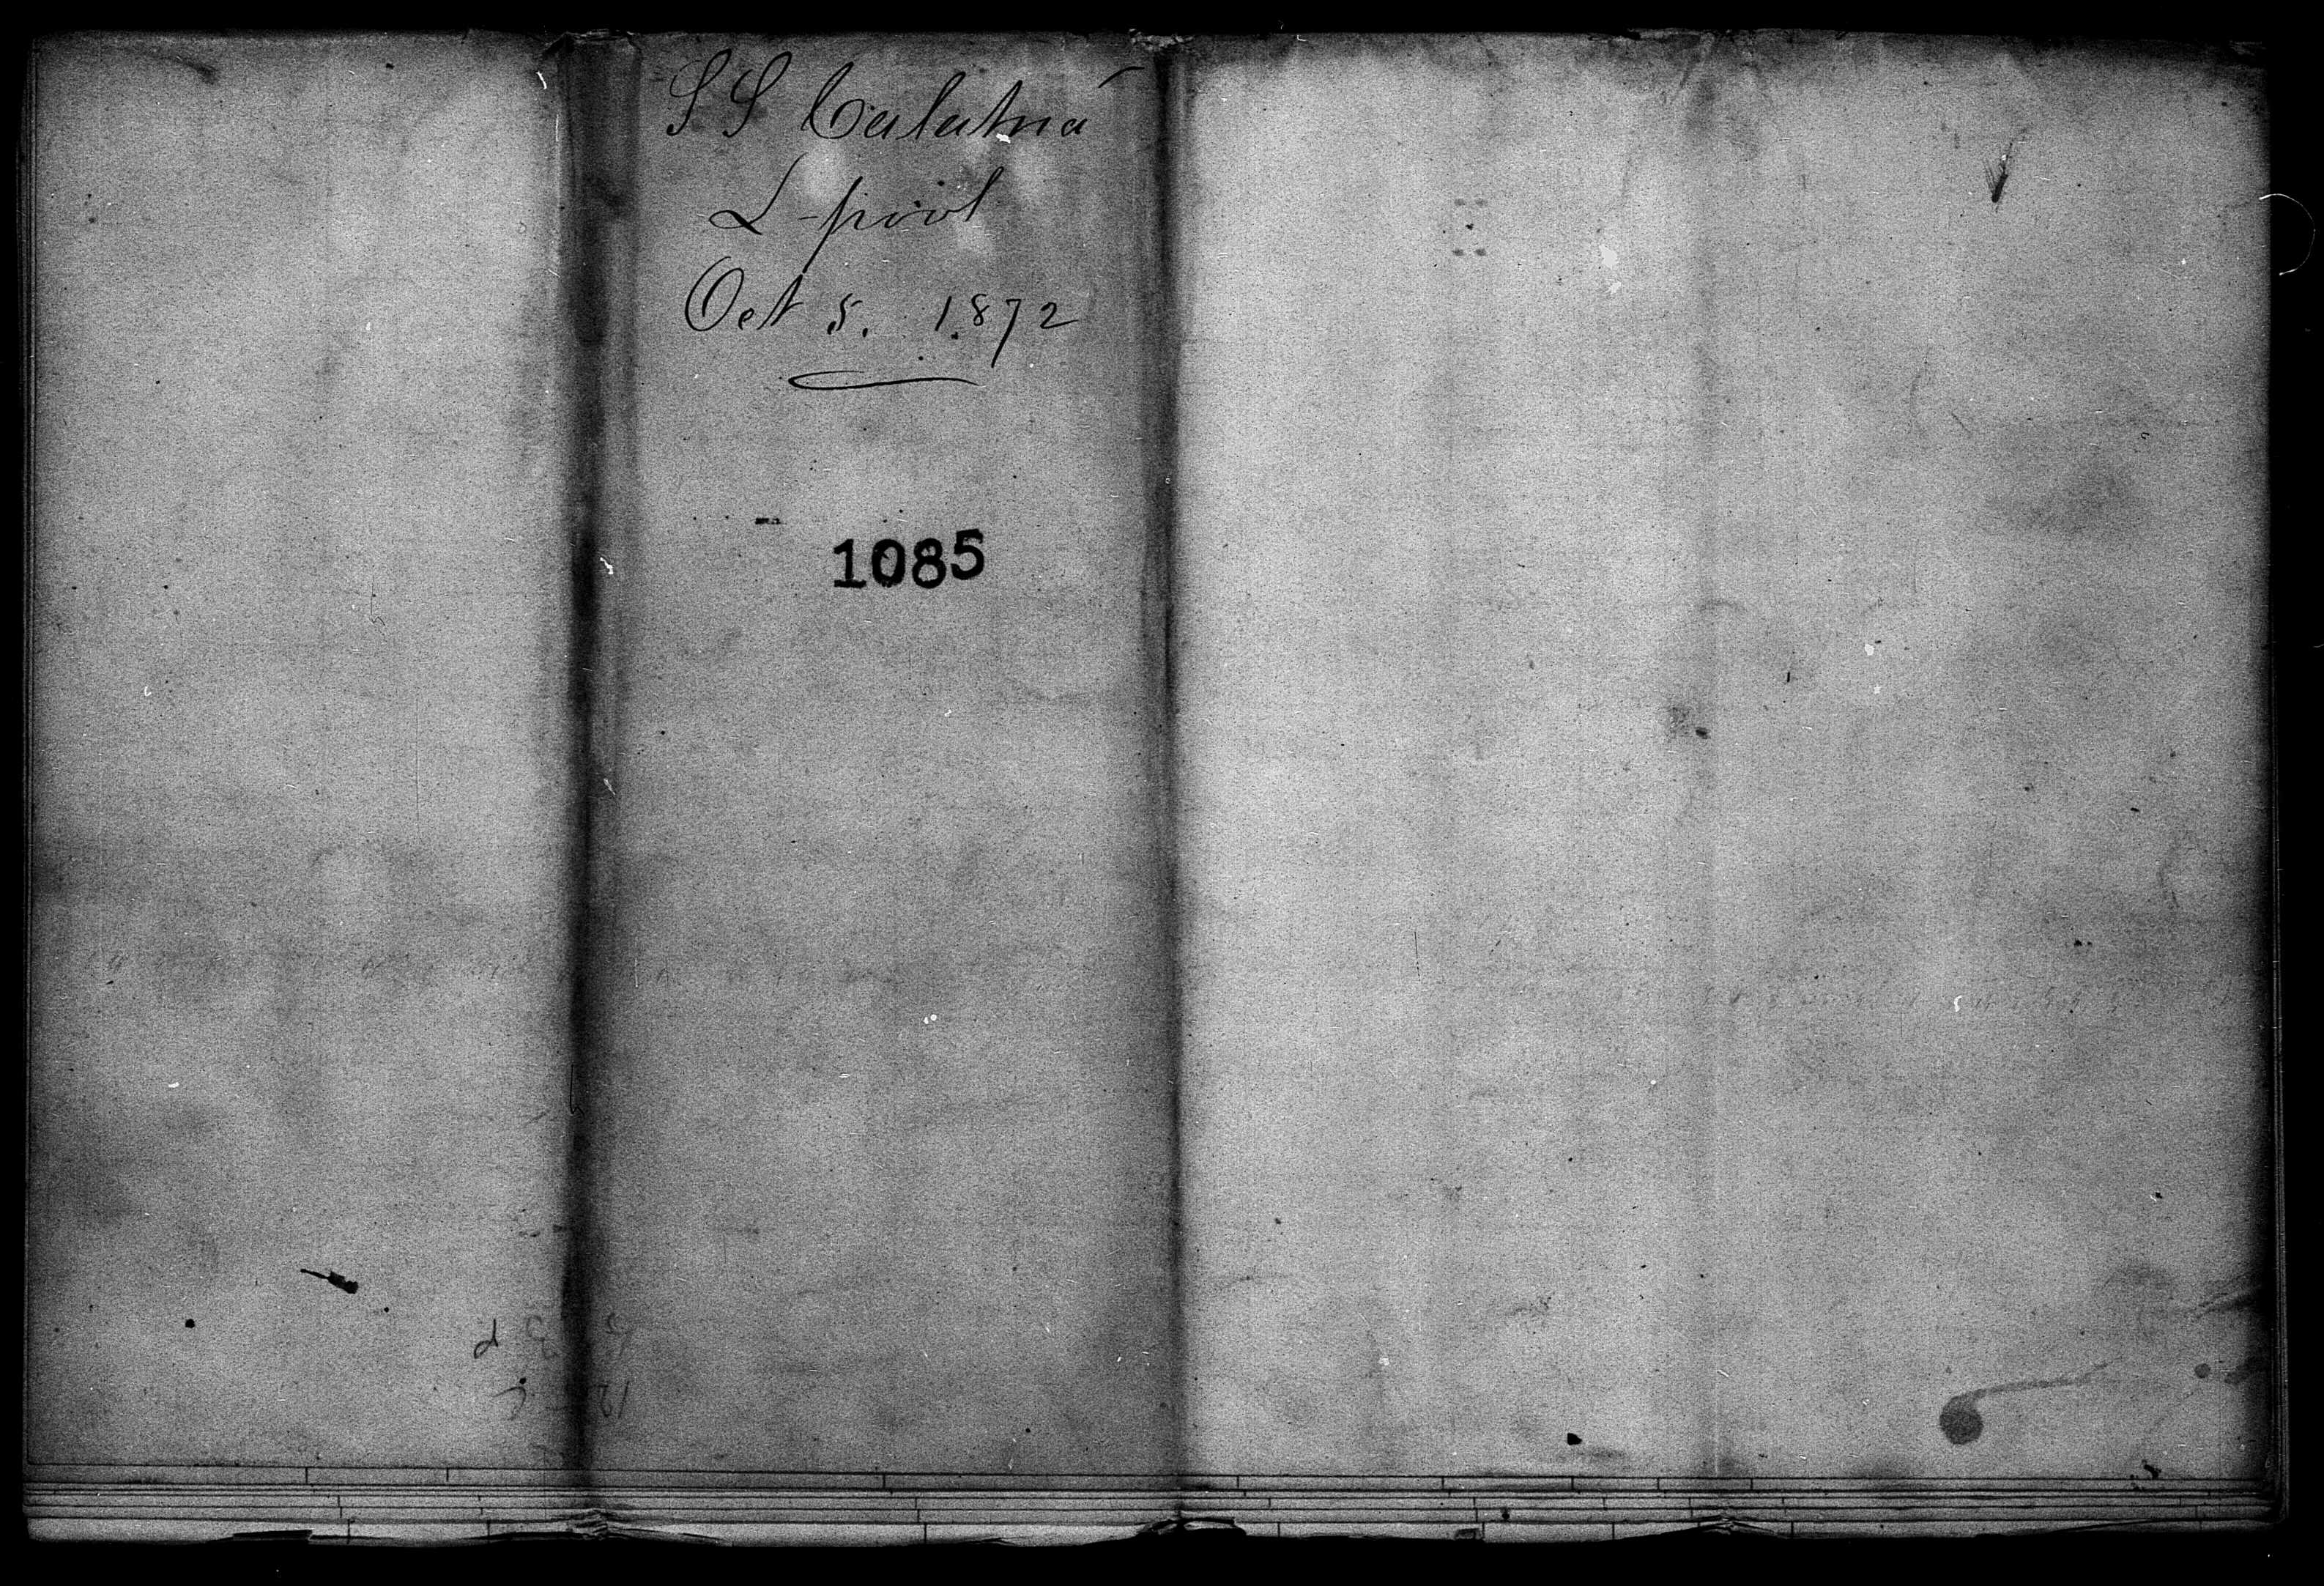 SS Calabria
L-pool
Oct 5. 1872
1085